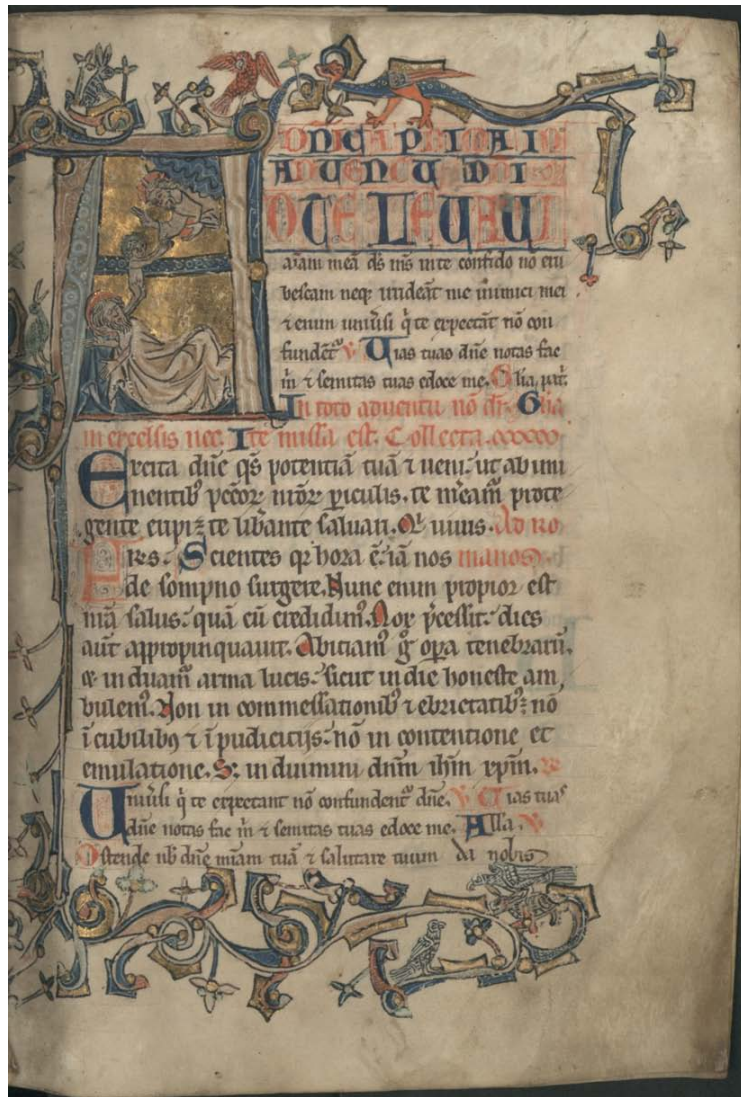 DNICA PRIMA I
ADUENTU DNI
D TE LEUAUI
aīam meā ds ms in te confido nō eru
bescam neq irrideāt me inimici mei
⁊ enim uniūsi q̇ te expectāt nō con
fundēt᷑ V Uias tuas dn̄e notas fac
m̄ ⁊ semitas tuas edoce me. Glia. pat.
In toto aduentu nō dr̄. Glia
in excelsis nec. Ite missa est. Collecta.
Excita dn̄e qs̄ potentiā tuā ⁊ ueni. ut ab imi
nentib pccor̄ nror̄ ꝑiculis. te meam᷑ prote
gente eripi ⁊ te libante saluari. Qi uiuis. Ad ro
Fres. Scientes qr hora ē. iā nos manos
de sompno surgere. Nunc enim propior est
nrā salus. quā cū credidim᷒. Nox p̄cessit. dies
aut̄ appropinquauit. Abiciam᷒ g̊ oꝑa tenebrarū.
& induam᷒ arma lucis. sicut in die honeste am
bulem᷒. Non in commessationib ⁊ ebrietatib. nō
ī cubilibꝫ ⁊ īpudicitijs. nō in contentione et
emulatione. Sꝫ induimini dn̄m ihm xp̄m. R
Uniūsi q̇ te expectant nō confundent᷑ dn̄e. V Uias tuas
dn̄e notas fac m̄ ⁊ semitas tuas edoce me. Alla. V
Ostende nb̄ dn̄e miam tuā ⁊ salutare tuum da nobis